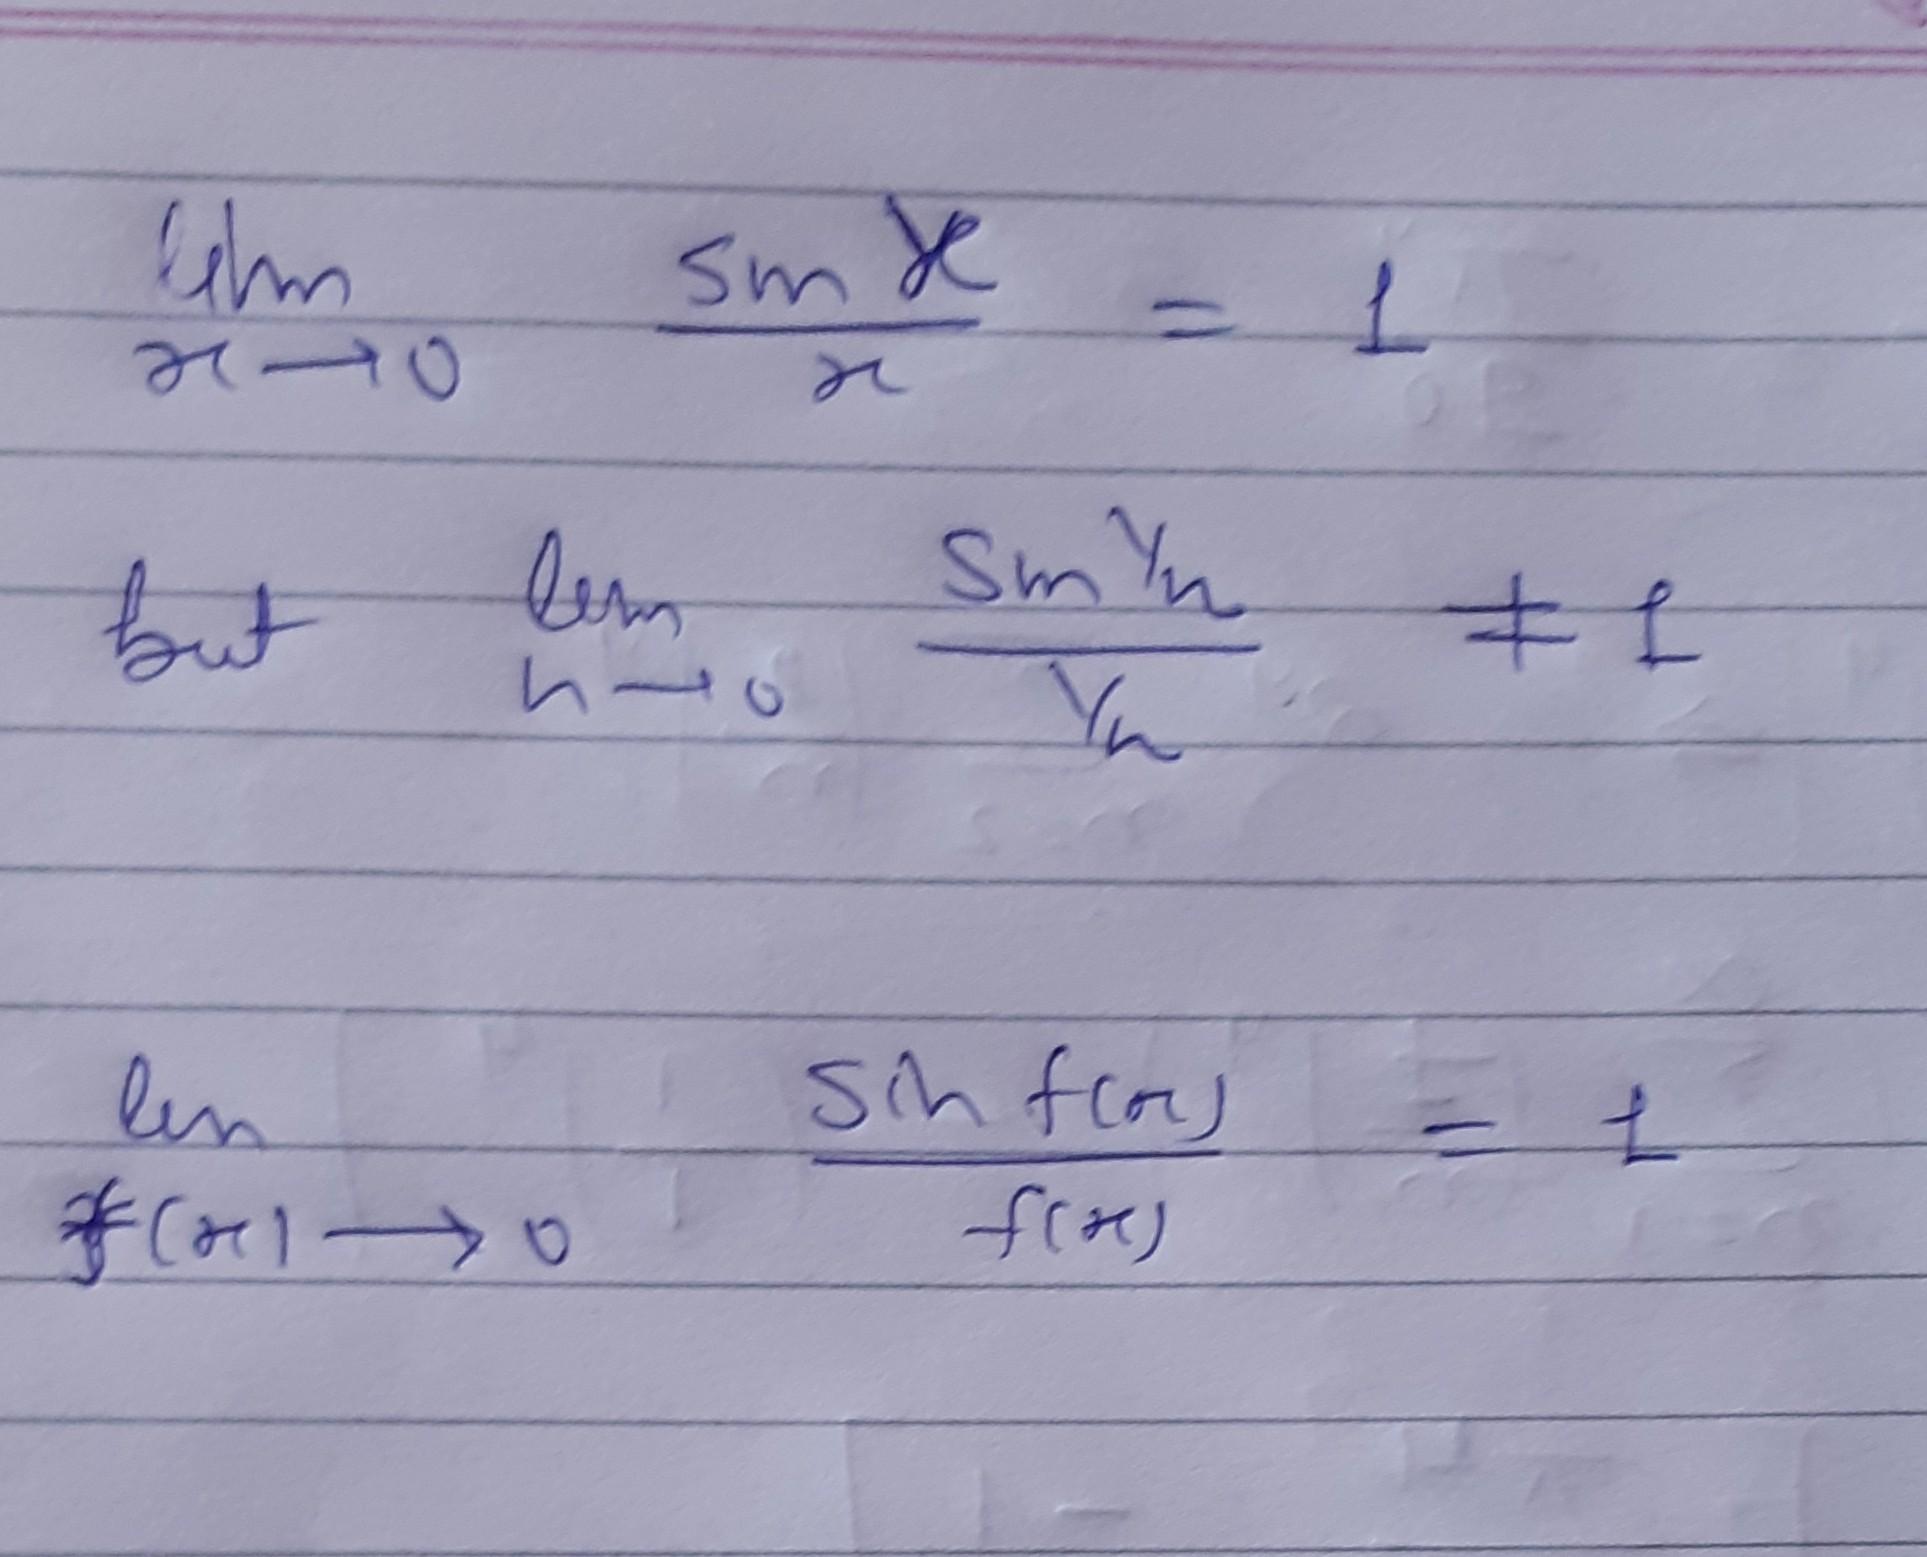 lim x→0 sin x / x = 1
but lim n→0 sin 1/n / 1/n ≠ 1
lim f(x) → 0 sin f(x) / f(x) = 1